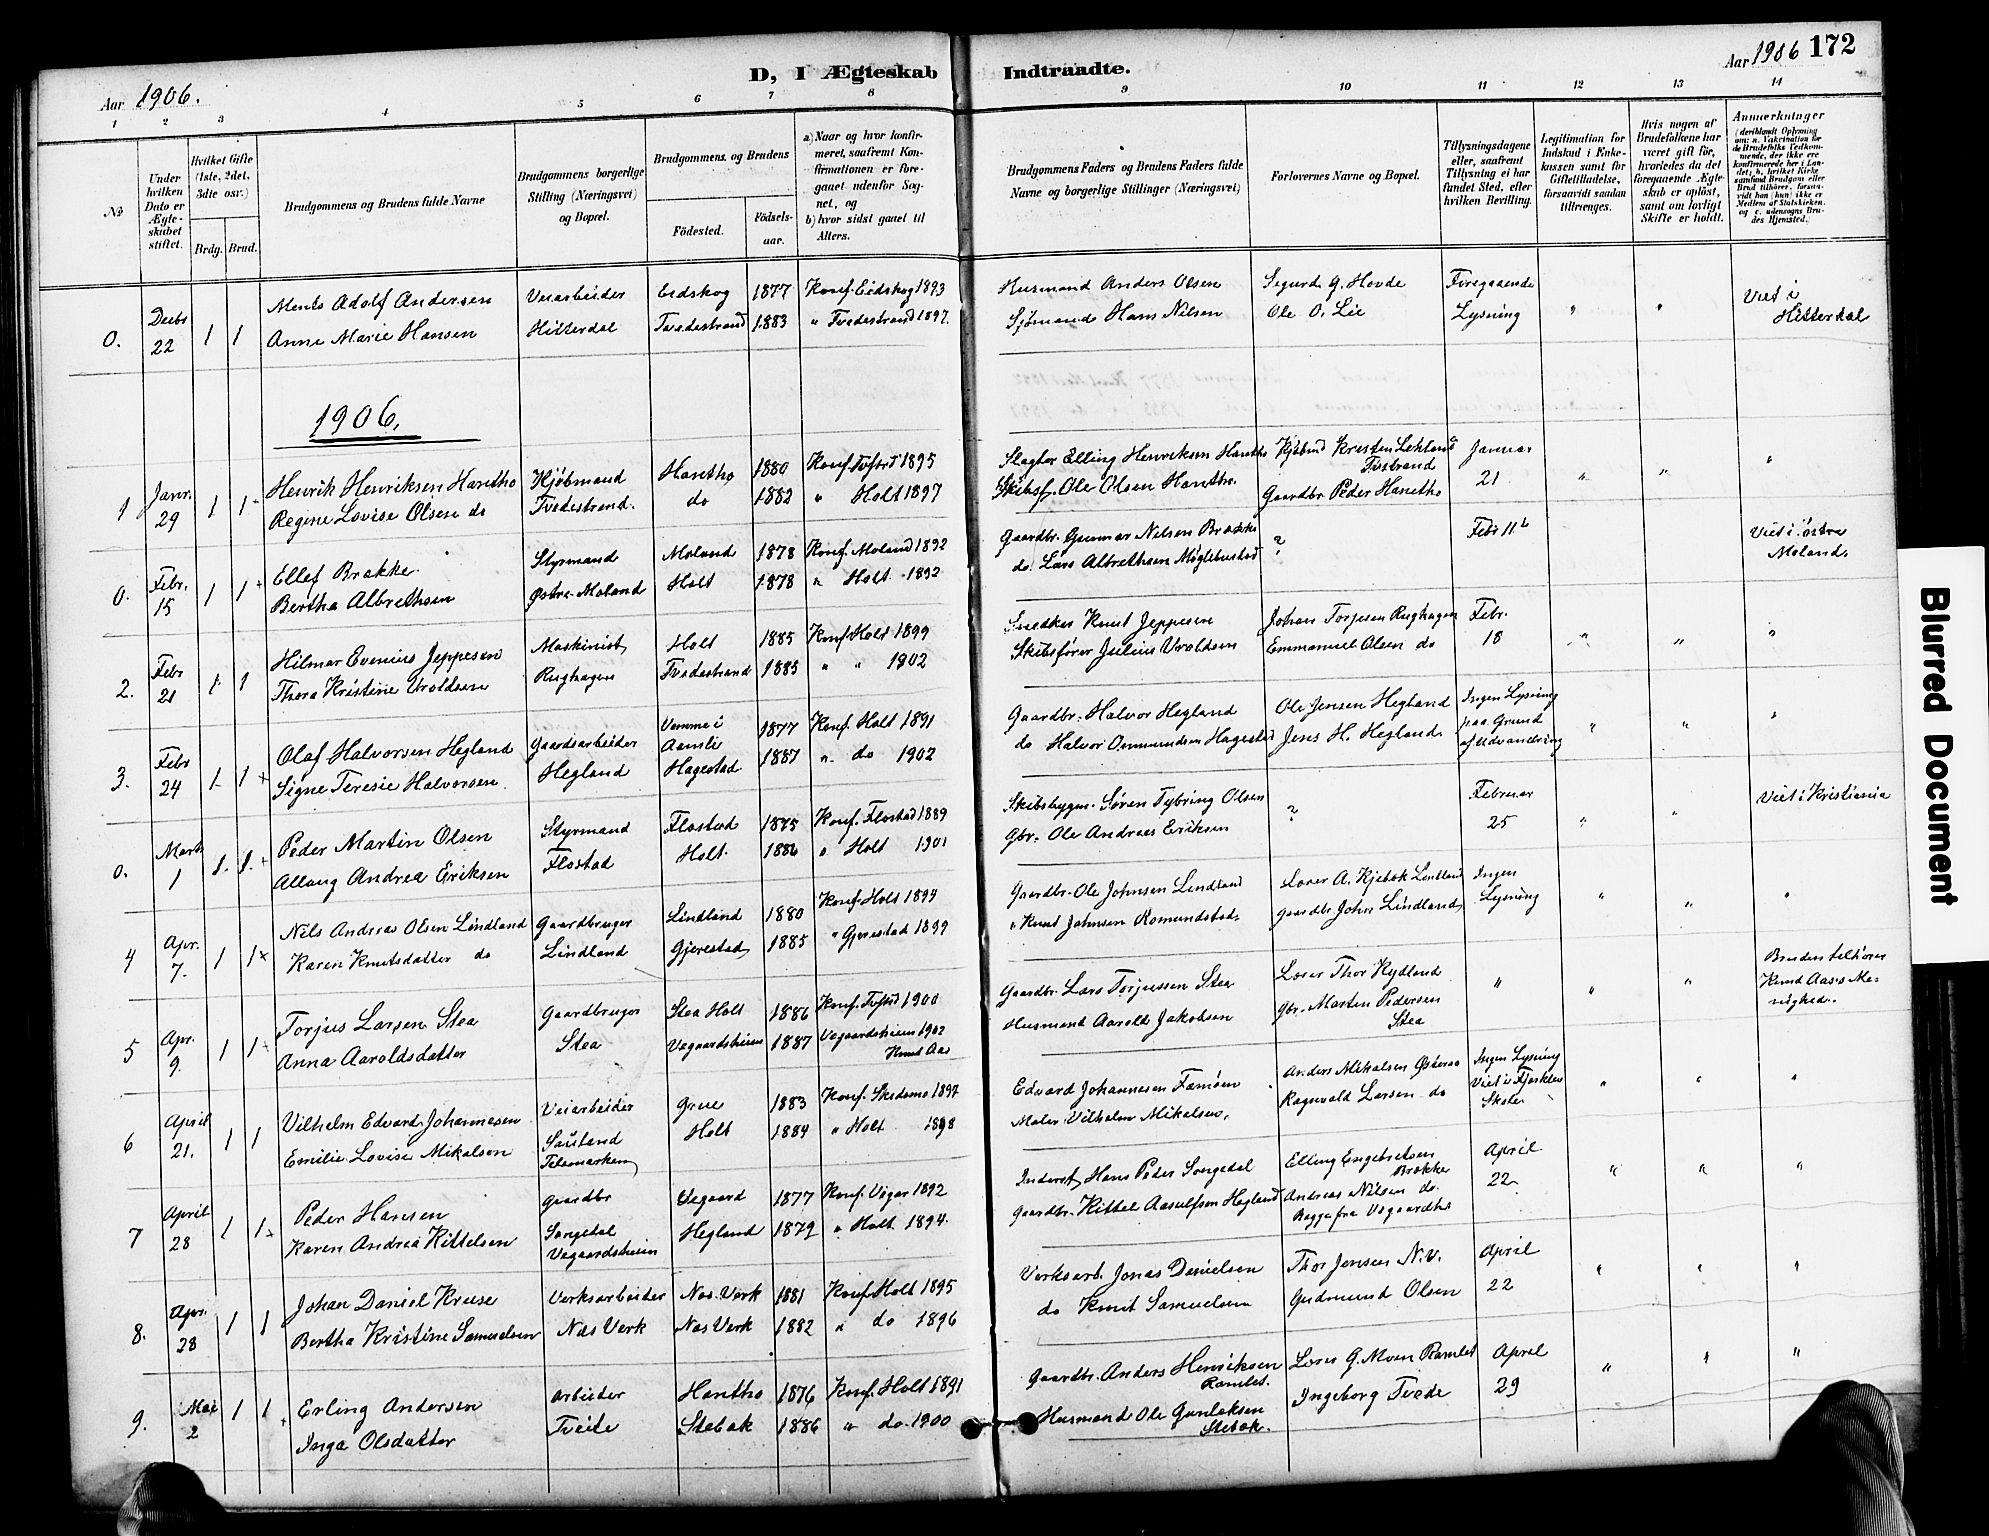 Aar 1906.
D, I Ægteskab Indtraadte.
Aar 1906 172
1 2 3 4 5 6 7 8 9 10 11 12 13 14
No
Under hvilken Dato er Ægteskabet stiftet.
Hvilket Gifte (1ste, 2det, 3dte osv.)
Brdg. Brud.
Brudgommens og Brudens fulde Navne
Brudgommens borgerlige Stilling (Næringsvei) og Bopæl.
Brudgommens og Brudens
Födested.
Födselsaar.
a) Naar og hvor konfirmeret, saafremt Konfirmationen er foregaaet udenfor Sognet, og
b) hvor sidst gaaet til Alters.
Brudgommens Faders og Brudens Faders fulde Navne og borgerlige Stillinger (Næringsvei)
Forlovernes Navne og Bopæl.
Tillysningsdagene eller, saafremt Tillysning ei har fundet Sted, efter hvilken Bevilling.
Legitimation for Indskud i Enkekassen samt for Giftetilladelse, forsaavidt saadan tiltrænges.
Hvis nogen af Brudefolkene har været gift för, hvorledes da det foregaaende Ægteskab er oplöst, samt om lovligt Skifte er holdt.
Anmærkninger
0. Decbr 22 1 1 Andersen Veiarbeider Eidskog 1877 Konf. Eidskog 1893 Husmand Anders Olsen Sigurd G. Hovde Foregaaende Viet i
Anne Marie Hansen Hitterdal Tvedestrand 1883 " Tvedestrand 1897. Sjømand Hans Nilsen Ole O. Lie Lysning " " Hitterdal
1906.
1 Janr. 29 1 1 Henrik Henriksen Hantho Kjöbmand Hantho 1880 Konf. Tvestrd 1895 Slagter Elling Henriksen Hantho Januar "
Regine Lovise Olsen do Tvedestrand. do 1882 " Holt 1897 Skibsf. Ole Olsen Hantho. Gaardbr. Peder Hantho 21 " "
0. Febr. 15 1 1 Ellef Brokke Styrmand Moland 1878 Konf. Moland 1892 Gaardbr. Gunnar Nilsen Brokke ? Febr 11 Viet i östre
Bertha Albrethsen Østre-Moland Holt 1878 " Holt 1892 do. Lars Albrethsen Moland.
2. Febr 21 1 1 Hilmar Evenius Jeppesen Maskinist Holt 1885 Konf. Holt 1899 Snedker Knut Jeppesen Johan Torjusen Rughagen Febr. "
Thora Kristine Uroldsen Rughagen Tvedestrand 1885 " " 1902 Skibsfører Julius Uroldsen Emmanuel Olsen do 18 " "
3. Febr 24 1 1 Olaf Halvorsen Hegland Gaardsarbeider Vemme i Aamli 1877 Konf. Holt 1891 Gaardbr. Halvor Hegland Ole Jensen Hegland Ingen Lysning paa Grund
Signe Teresie Halvorsen Hegland Hagestad 1887 " do 1902 do Halvor Hagestad Jens H. Hegland af Udvandring " " "
0. Marts 1 1 1 Peder Martin Olsen Styrmand Flostad 1875 Konf. Flostad 1889 Skibsbygm. Søren Tybring Olsen ? Februar Viet i Kristiania
Andrea Eriksen Flostad Holt 1886 " Holt 1901 Gbr. Ole Andreas Eriksen 25 " "
4 Apr. 7. 1 1 Nils Andreas Olsen Lindland Gaardbruger Lindland 1880 Konf. Holt 1894 Gaardbr. Ole Johnsen Lindland Ingen
Karen Knutsdatter do Lindland Gjerestad 1885 " Gjerestad 1899 " Knut Johnsen Romundstad. Gaardbr. John Lindland Lysning " " "
5 Apr. 9. 1 1 Torjus Larsen Stea Gaardbruger Stea Holt 1886 Konf. 1900 Gaardbr. Lars Torjussen Stea Thor Rydland " " " Bruden tilhörer
Anna Aaroldsdatter Stea Vegaardsheim 1887 Vegaardsheim 1902 Knut Aas Husmand Aarold Jakobsen Gbr. Morten Pedersen Stea Knud Aas's Menighed.
6 April 21. 1 1 Vilhelm Edvard Johannesen Veiarbeider Grue 1883 Konf. Skedsmo 1897 Edvard Johannesen Anders Mikalsen Ingen Lysning
Emilie Lovise Mikalsen Sauland Telemarken Holt 1884 " Holt 1898 Maler Vilhelm Mikalsen. Ragnvald Larsen do " " "
7 April 28 1 1 Peder Hansen Gaardbr 1877 Konf. Vegar 1892 Hans Peder Songedal Elling Engebretsen Brokke April
Karen Andrea Kittelsen Songedal Vegaardsheim Hegland 1879 " Holt 1894. Gaardbr. Kittel Aasulfsen Hegland Andreas Nilsen do. 22 " " "
8. Apr. 28 1 1 Johan Daniel Kruse Verksarbeider Nes Verk 1881 Konf. Holt 1895 Verksarb. Jonas Danielsen Thor Jensen N.V. April
Bertha Kristine Samuelsen Næs Verk Næs Verk 1882 " do 1896 do Knut Samuelsen Gudmund Olsen 22 " " "
9. Mai 2 1 1 Erling Andersen Arbeider Hantho 1876 Konf. Holt 1891 Gaardbr. Anders Henriksen Ramlet. April
Inga Olsdatter Tveite Stebok 1886 " do. 1900 Husmand Ole Gunleksen Stebok. Ingeborg Tvede 29 " " "
Blurred Document